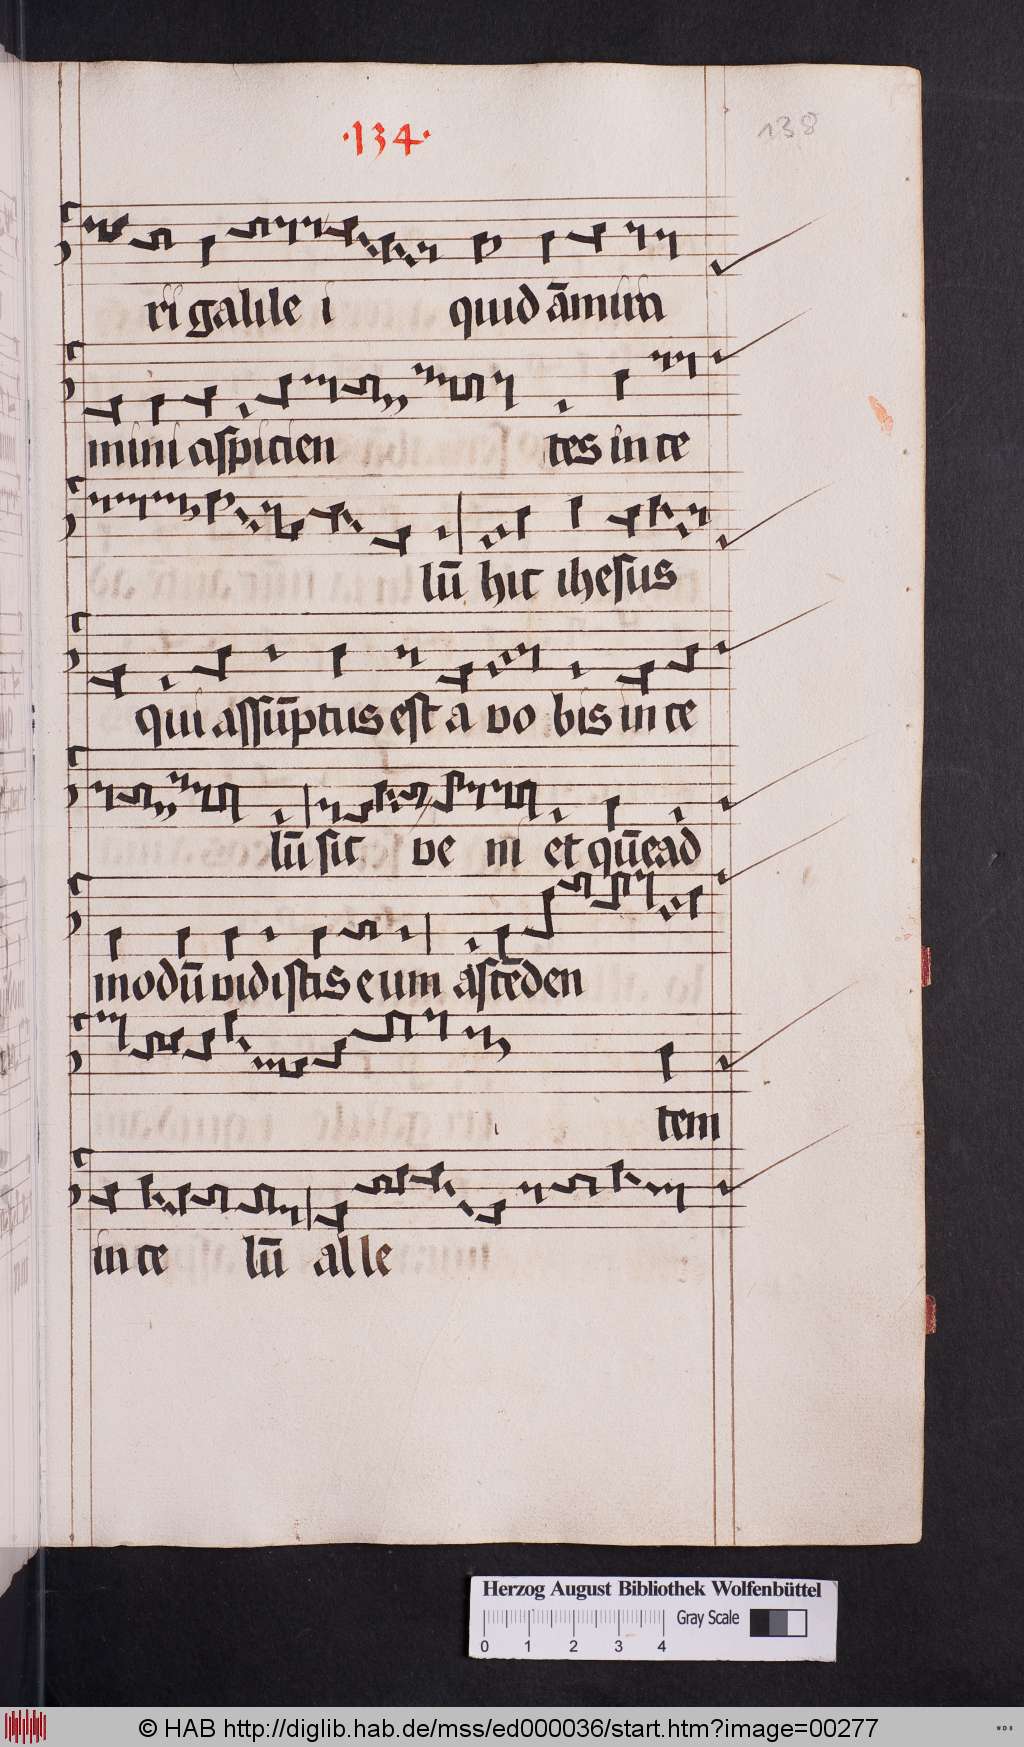 ·134·
138
ri galile i quid āmira
mini aspicien tes in ce
lū hic ihesus
qui assūptus est a vo bis in ce
lū sic ve ni et quēad
modū vidistis eum ascēden
tem
in ce lū al le
Herzog August Bibliothek Wolfenbüttel
Gray Scale
0 1 2 3 4
© HAB http://diglib.hab.de/mss/ed000036/start.htm?image=00277